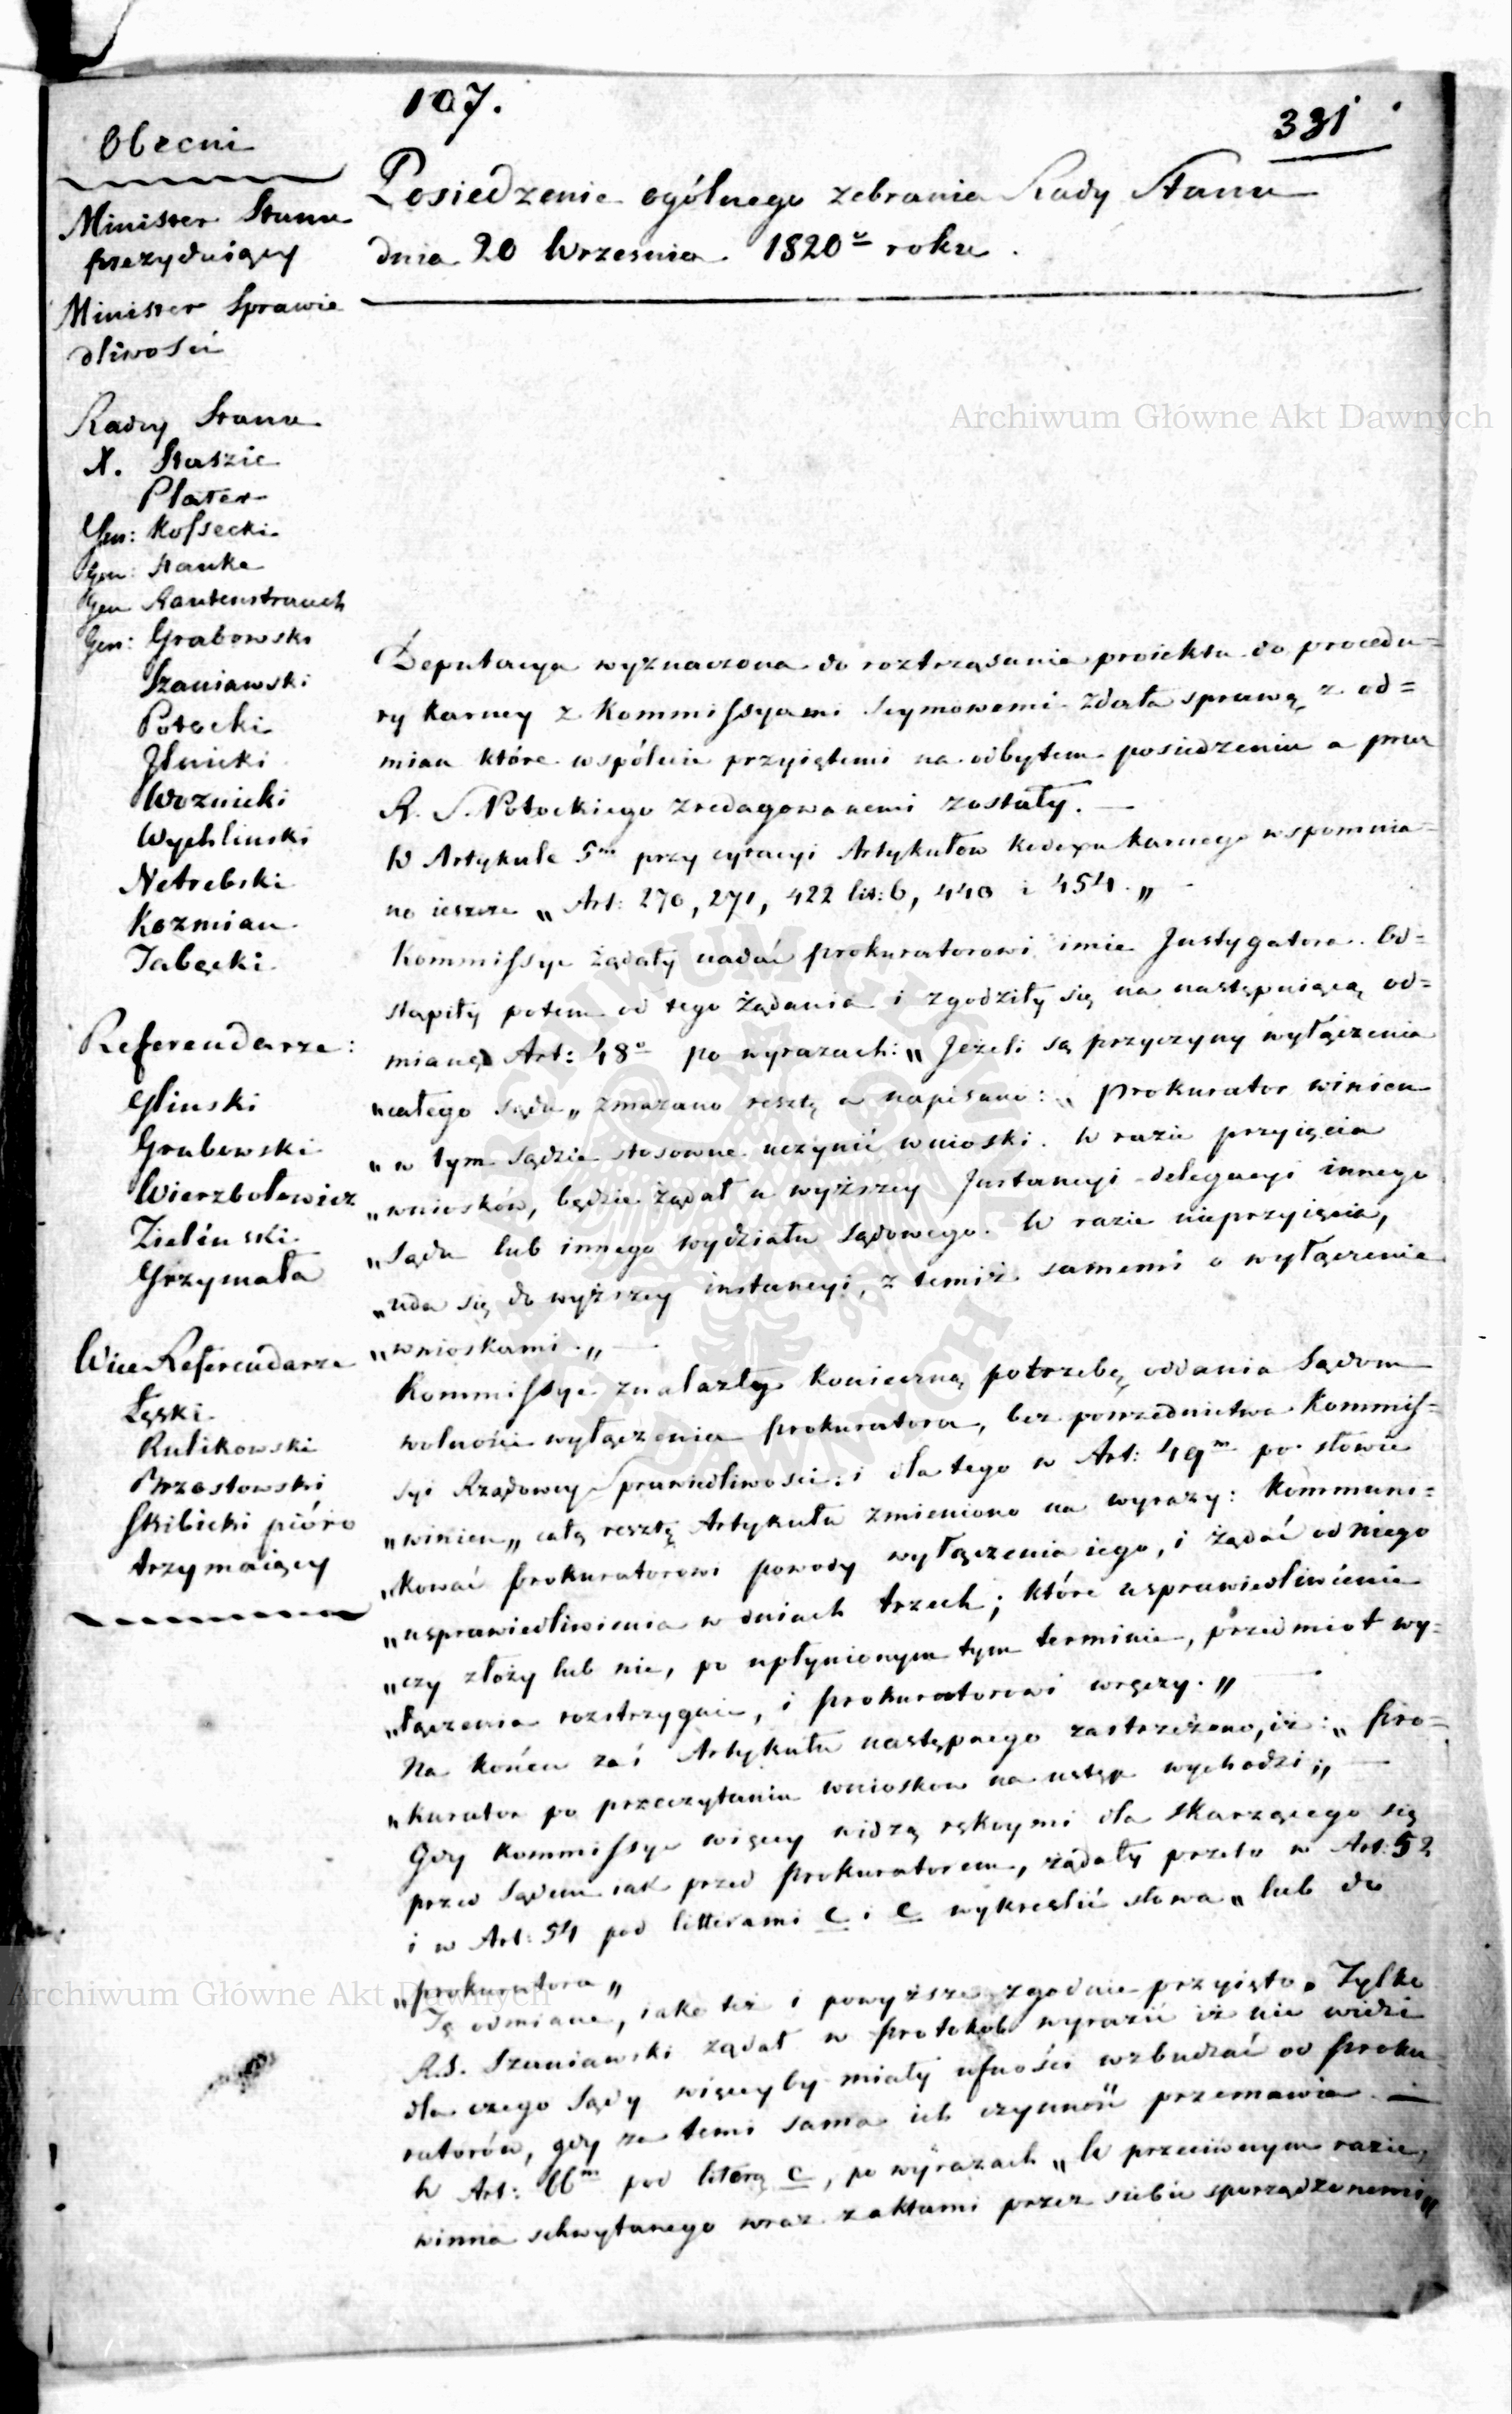 107.
331
Obecni
Minister Stanu
prezyduiący
Minister Sprawie
dliwości
Radcy Stanu
X. Staszic
Plater
Gen: Kossecki
Gen: Hauke
Gen Rautenstrauch
Gen: Grabowski
Szaniawski
Potocki
Woznicki
Wychlinski
Netrebski
Kozmian
Referendarze:
Glinski
Grabowski
Wierzbołowicz
Zieliński
Grzymała
Wice Referendarze
Łęski
Kulikowski
Brzostowski
Skibicki pióro
trzymaiący
Posiedzenie ogólnego zebrania Rady Stanu
dnia 20 Września 1820º roku.
Deputacya wyznaczona do roztrząsania proiektu do procedu=
ry karney z Kommissyami Seymowemi zdała sprawę z od=
mian które wspólnie przyiętemi na odbytem posiedzeniu a przez
R. S. Potockiego zredagowanemi zostały. —
W Artykule 5m przy cytacyi Artykułów Kodexu karnego wspomnia=
no ieszcze „Art: 270, 271, 422 lit: b, 440 i 454.„ —
Kommissye żądały nadać prokuratorowi imie Instygatora. Od=
stąpiły potem od tego żądania i zgodziły się na następuiącą od=
mianę Art: 48º po wyrazach: „Jeżeli są przyczyny wyłączenia
„całego Sądu„ zmazano resztę a napisano: „Prokurator winien
„w tym Sądzie stosowne uczynić wnioski. W razie przyięcia
„wniosków, będzie żądał u wyższey Instancyi delegacyi innego
„Sądu lub innego wydziału Sądowego. W razie nieprzyięcia,
„uda się do wyższey instancyi, z temiż samemi o wyłączenie
„wnioskami.„ —
Kommissye znalazły konieczną potrzebę oddania Sądom
wolności wyłączenia prokuratora, bez pośrednictwa Kommis=
syi Rządowey Sprawiedliwości: i dla tego w Art: 49m po słowie
„winien„ całą resztę Artykułu zmieniono na wyrazy: Kommuni=
„kować prokuratorowi powody wyłączenia iego, i żądać od niego
„usprawiedliwienia w dniach trzech; które usprawiedliwienie
„czy złoży lub nie, po upłynionym tym terminie, przedmiot wy=
„łączenia rozstrzygnie, i prokuratorowi wręczy.„ —
Na końcu zaś Artykułu następnego zastrzeżono, iż: „Pro=
„kurator po przeczytaniu wniosków na ustęp wychodzi;„ —
Gdy Kommissye więcey widzą rękoymi dla skarżącego się
przed Sądem iak przed prokuratorem, żądały przeto w Art: 52
i w Art: 54 pod litterami c i e wykreślić słowa „lub do
„prokuratora„
Tę odmianę, iako też i powyższe zgodnie przyięto. Tylko
R.S. Szaniawski żądał w protokole wyrazić iż nie widzi
dla czego Sądy więceyby miały ufności wzbudzać od proku=
ratorów, gdy za temi sama ich czynność przemawia. —
W Art: 66m pod literą c, po wyrazach „W przeciwnym razie,
winna schwytanego wraz z aktami przez siebie sporządzonemi„
Archiwum Główne Akt Dawnych
Archiwum Główne Akt Dawnych